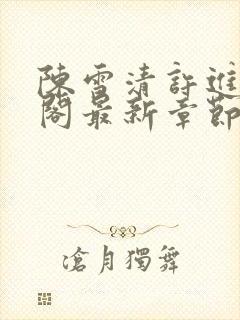 陳雪清許進
閣最新章節
滄月獨舞